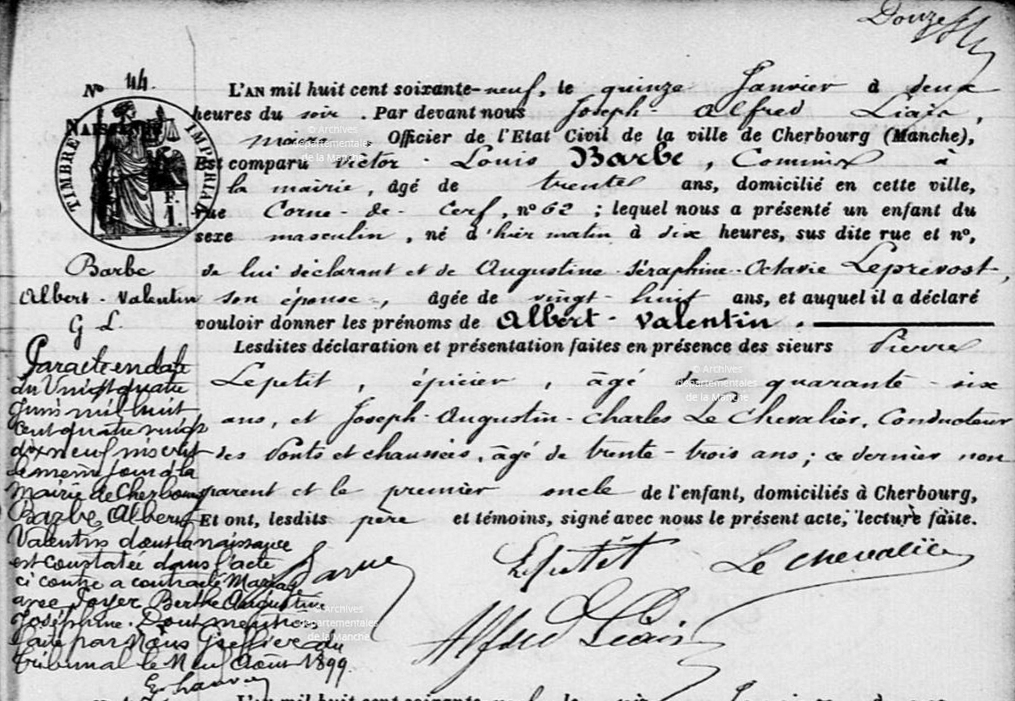 Douze
N° 44.
NAISSANCE
TIMBRE IMPERIAL
F. 1
Barbe
Albert-Valentin
G L.
L'AN mil huit cent soixante-neuf, le quinze Janvier à deux
heures du soir. Par devant nous Joseph-Alfred Liais,
maire Officier de l'Etat Civil de la ville de Cherbourg (Manche),
Est comparu Victor-Louis Barbe, Commis à
la mairie, âgé de trente ans, domicilié en cette ville,
rue Corne-de-Cerf, n° 62; lequel nous a présenté un enfant du
sexe masculin, né d'hier matin à dix heures, sus dite rue et n°,
de lui déclarant et de Augustine-Séraphine-Octavie Leprevost,
son épouse, âgée de vingt-huit ans, et auquel il a déclaré
vouloir donner les prénoms de Albert-Valentin.
Lesdites déclaration et présentation faites en présence des sieurs Pierre
Lepetit, épicier, âgé de quarante-six
ans, et Joseph-Augustin-Charles Le Chevalier, Conducteur
des Ponts et chaussées, âgé de trente-trois ans; ce dernier non
parent et le premier oncle de l'enfant, domiciliés à Cherbourg,
Et ont, lesdits père et témoins, signé avec nous le présent acte, lecture faite.
Par acte en date
du Vingt quatre
Juin mil huit
cent quatre vingt
dix neuf inscrit
le même jour à la
Mairie de Cherbourg
Barbe Albert
Valentin dont la naissance
est constatée dans l'acte
ci contre a contracté Mariage
avec Foyer Berthe Augustine
Joséphine. Dont mention
faite par Nous Greffier du
tribunal le Neuf Août 1899.
Barbe
Lepetit Le Chevalier
Alfred Liais
© Archives
départementales
de la Manche
© Archives
départementales
de la Manche
© Archives
départementales
de la Manche
L'AN mil huit cent soixante